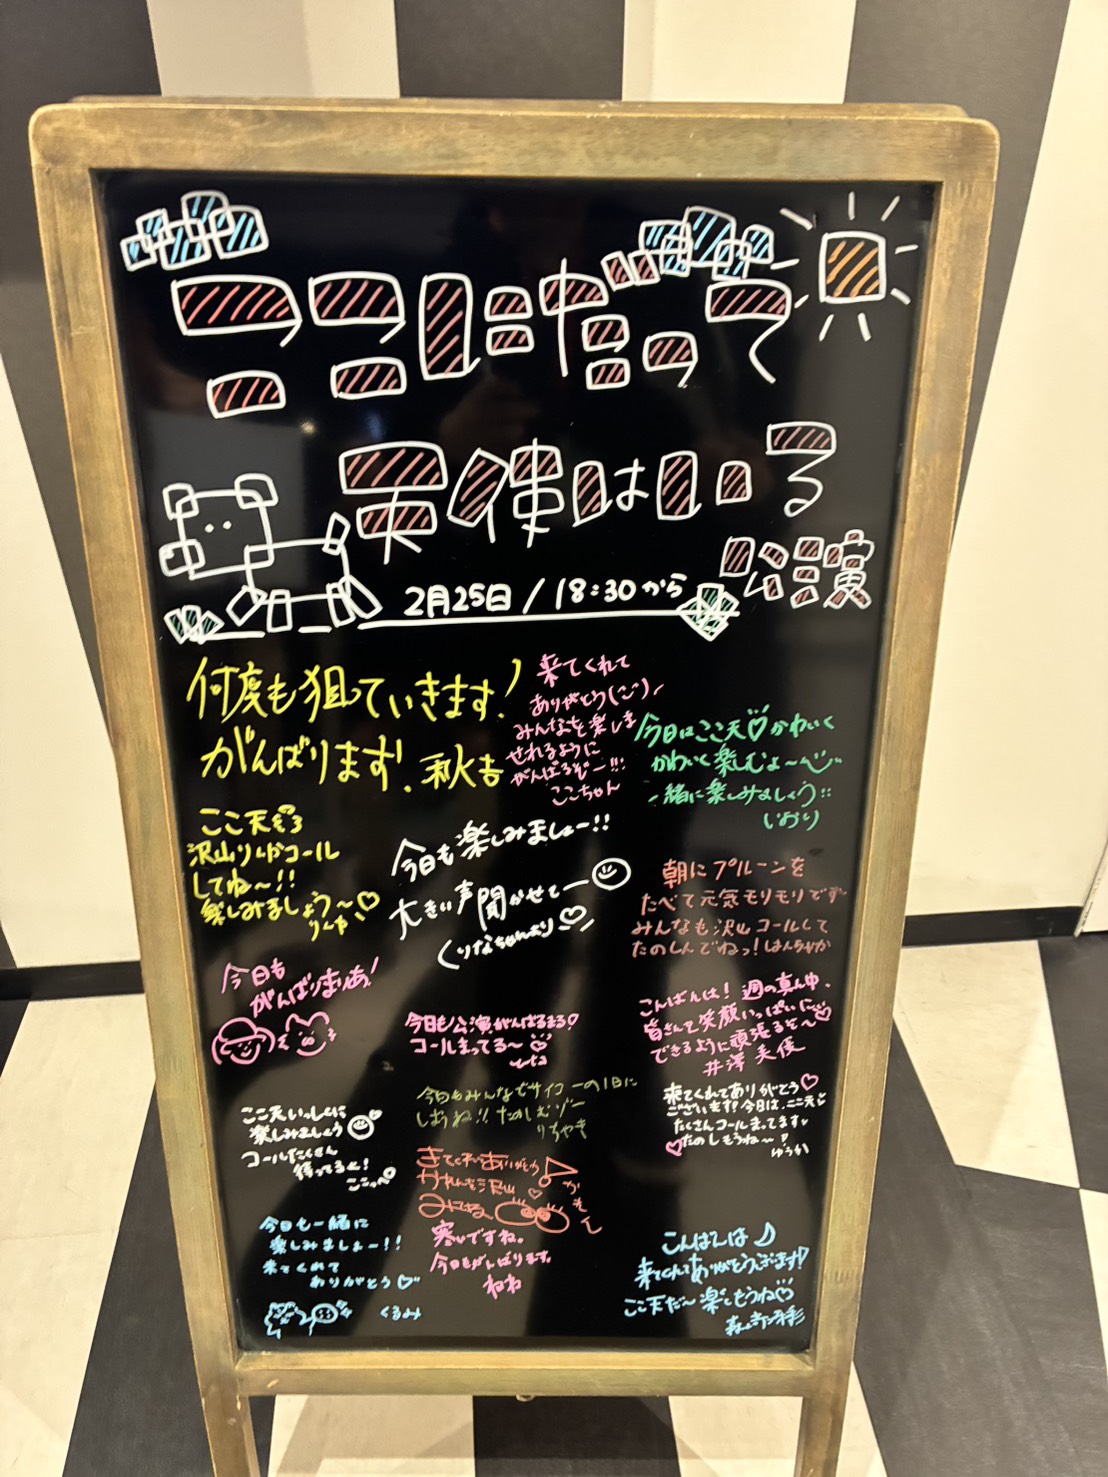 ここにだって
天使はいる
公演
2月25日/18:30から
何度も狙っていきます!
がんばります!秋吉
来てくれて
ありがとう
みんなを楽しま
せれるように
がんばるぞー!!!
ここちゃん
今日はここ天♡かわいく
かわいく楽しむよ〜
一緒に楽しみましょう
いおり
ここ天
沢山りんかコール
してね〜!!
楽しみましょう〜♡
今日も楽しみましょー!!
大きい声聞かせてー
くりなちゃんより♡
朝にプルーンを
たべて元気モリモリです
みんなも沢山コールして
たのしんでねっ!はんちゃか
今日も
がんばりまりあ!
今日も公演がんばるまる!
コールまってる〜
こんばんは!週の真ん中、
皆さんで笑顔いっぱいに
できるように頑張るぞ〜♡
井澤美優
今日もみんなでサイコーの1日に
しようね!!たのしむゾー
りちゃき
来てくれてありがとう♡
ございます!今日は、ここ天
たくさんコールまってます
♡たのしもうね〜!
ゆうか
ここ天いっしょに
楽しみましょう
コールたくさん
待ってるよ!
きてくれてありがとう
かれんも沢山
みてね
かれん
寒いですね。
今日もがんばります。
ねね
今日も一緒に
楽しみましょー!!
来てくれて
ありがとう♡
くるみ
こんばんは♪
来てくれてありがとうございます!
ここ天だ〜楽しもうね♡